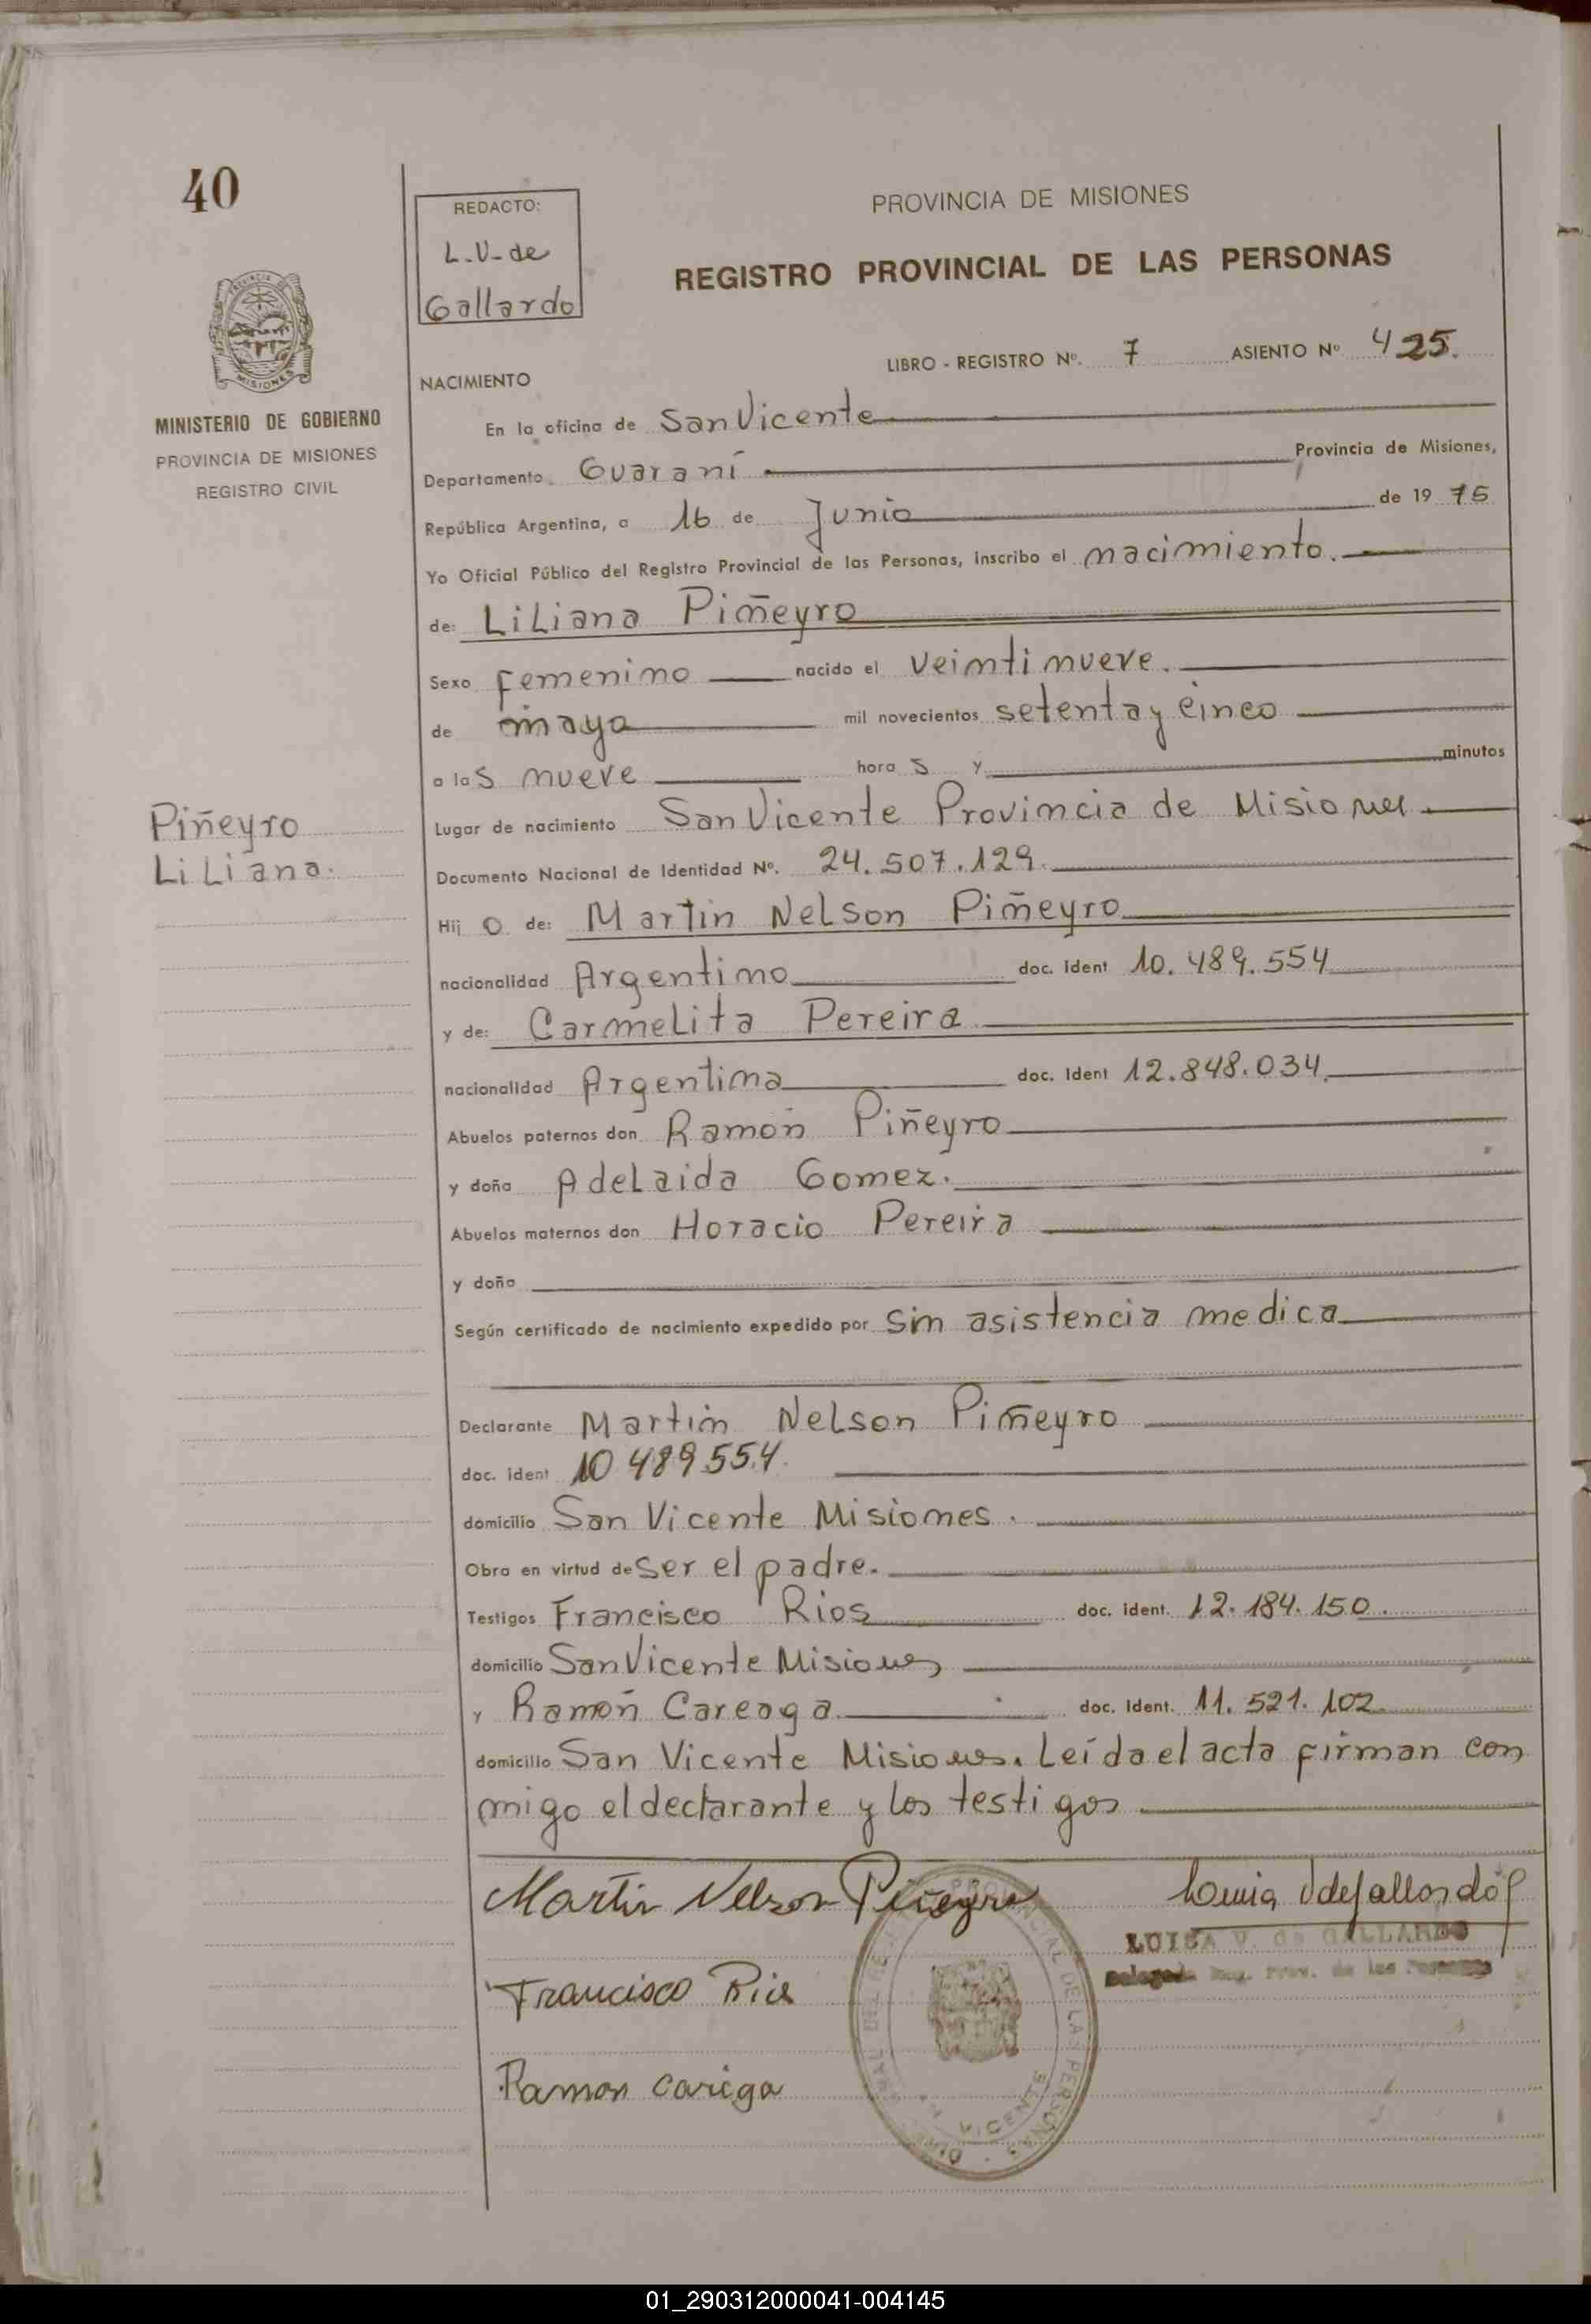 40
REDACTO:
L.V. de
Gallardo
PROVINCIA DE MISIONES
REGISTRO PROVINCIAL DE LAS PERSONAS
LIBRO - REGISTRO Nº. 7 ASIENTO Nº 425.
MISIONES
MINISTERIO DE GOBIERNO
PROVINCIA DE MISIONES
REGISTRO CIVIL
NACIMIENTO
En la oficina de San Vicente
Departamento Guaraní Provincia de Misiones,
República Argentina, a 16 de Junio de 1975
Yo Oficial Público del Registro Provincial de las Personas, inscribo el nacimiento.
de: Liliana Piñeyro
Sexo femenino nacido el veintinueve.
de mayo mil novecientos setenta y cinco
a las nueve horas y minutos
Piñeyro
Liliana.
Lugar de nacimiento San Vicente Provincia de Misiones
Documento Nacional de Identidad Nº. 24.507.129.
Hijo de: Martin Nelson Piñeyro
nacionalidad Argentino doc. ident 10.489.554
y de: Carmelita Pereira
nacionalidad Argentina doc. Ident 12.848.034.
Abuelos paternos don Ramón Piñeyro
y doña Adelaida Gomez.
Abuelos maternos don Horacio Pereira
y doña
Según certificado de nacimiento expedido por sin asistencia medica
Declarante Martin Nelson Piñeyro
doc. ident 10 489 554.
domicilio San Vicente Misiones.
Obra en virtud de ser el padre.
Testigos Francisco Rios doc. ident. 12.184.150.
domicilio San Vicente Misiones
y Ramón Careaga doc. Ident. 11.521.102
domicilio San Vicente Misiones. Leída el acta firman con
migo el declarante y los testigos
Martin Nelson Piñeyro
LUISA V. de GALLARDO
Francisco Rios
Ramon cariga
VICENTE
01_290312000041-004145